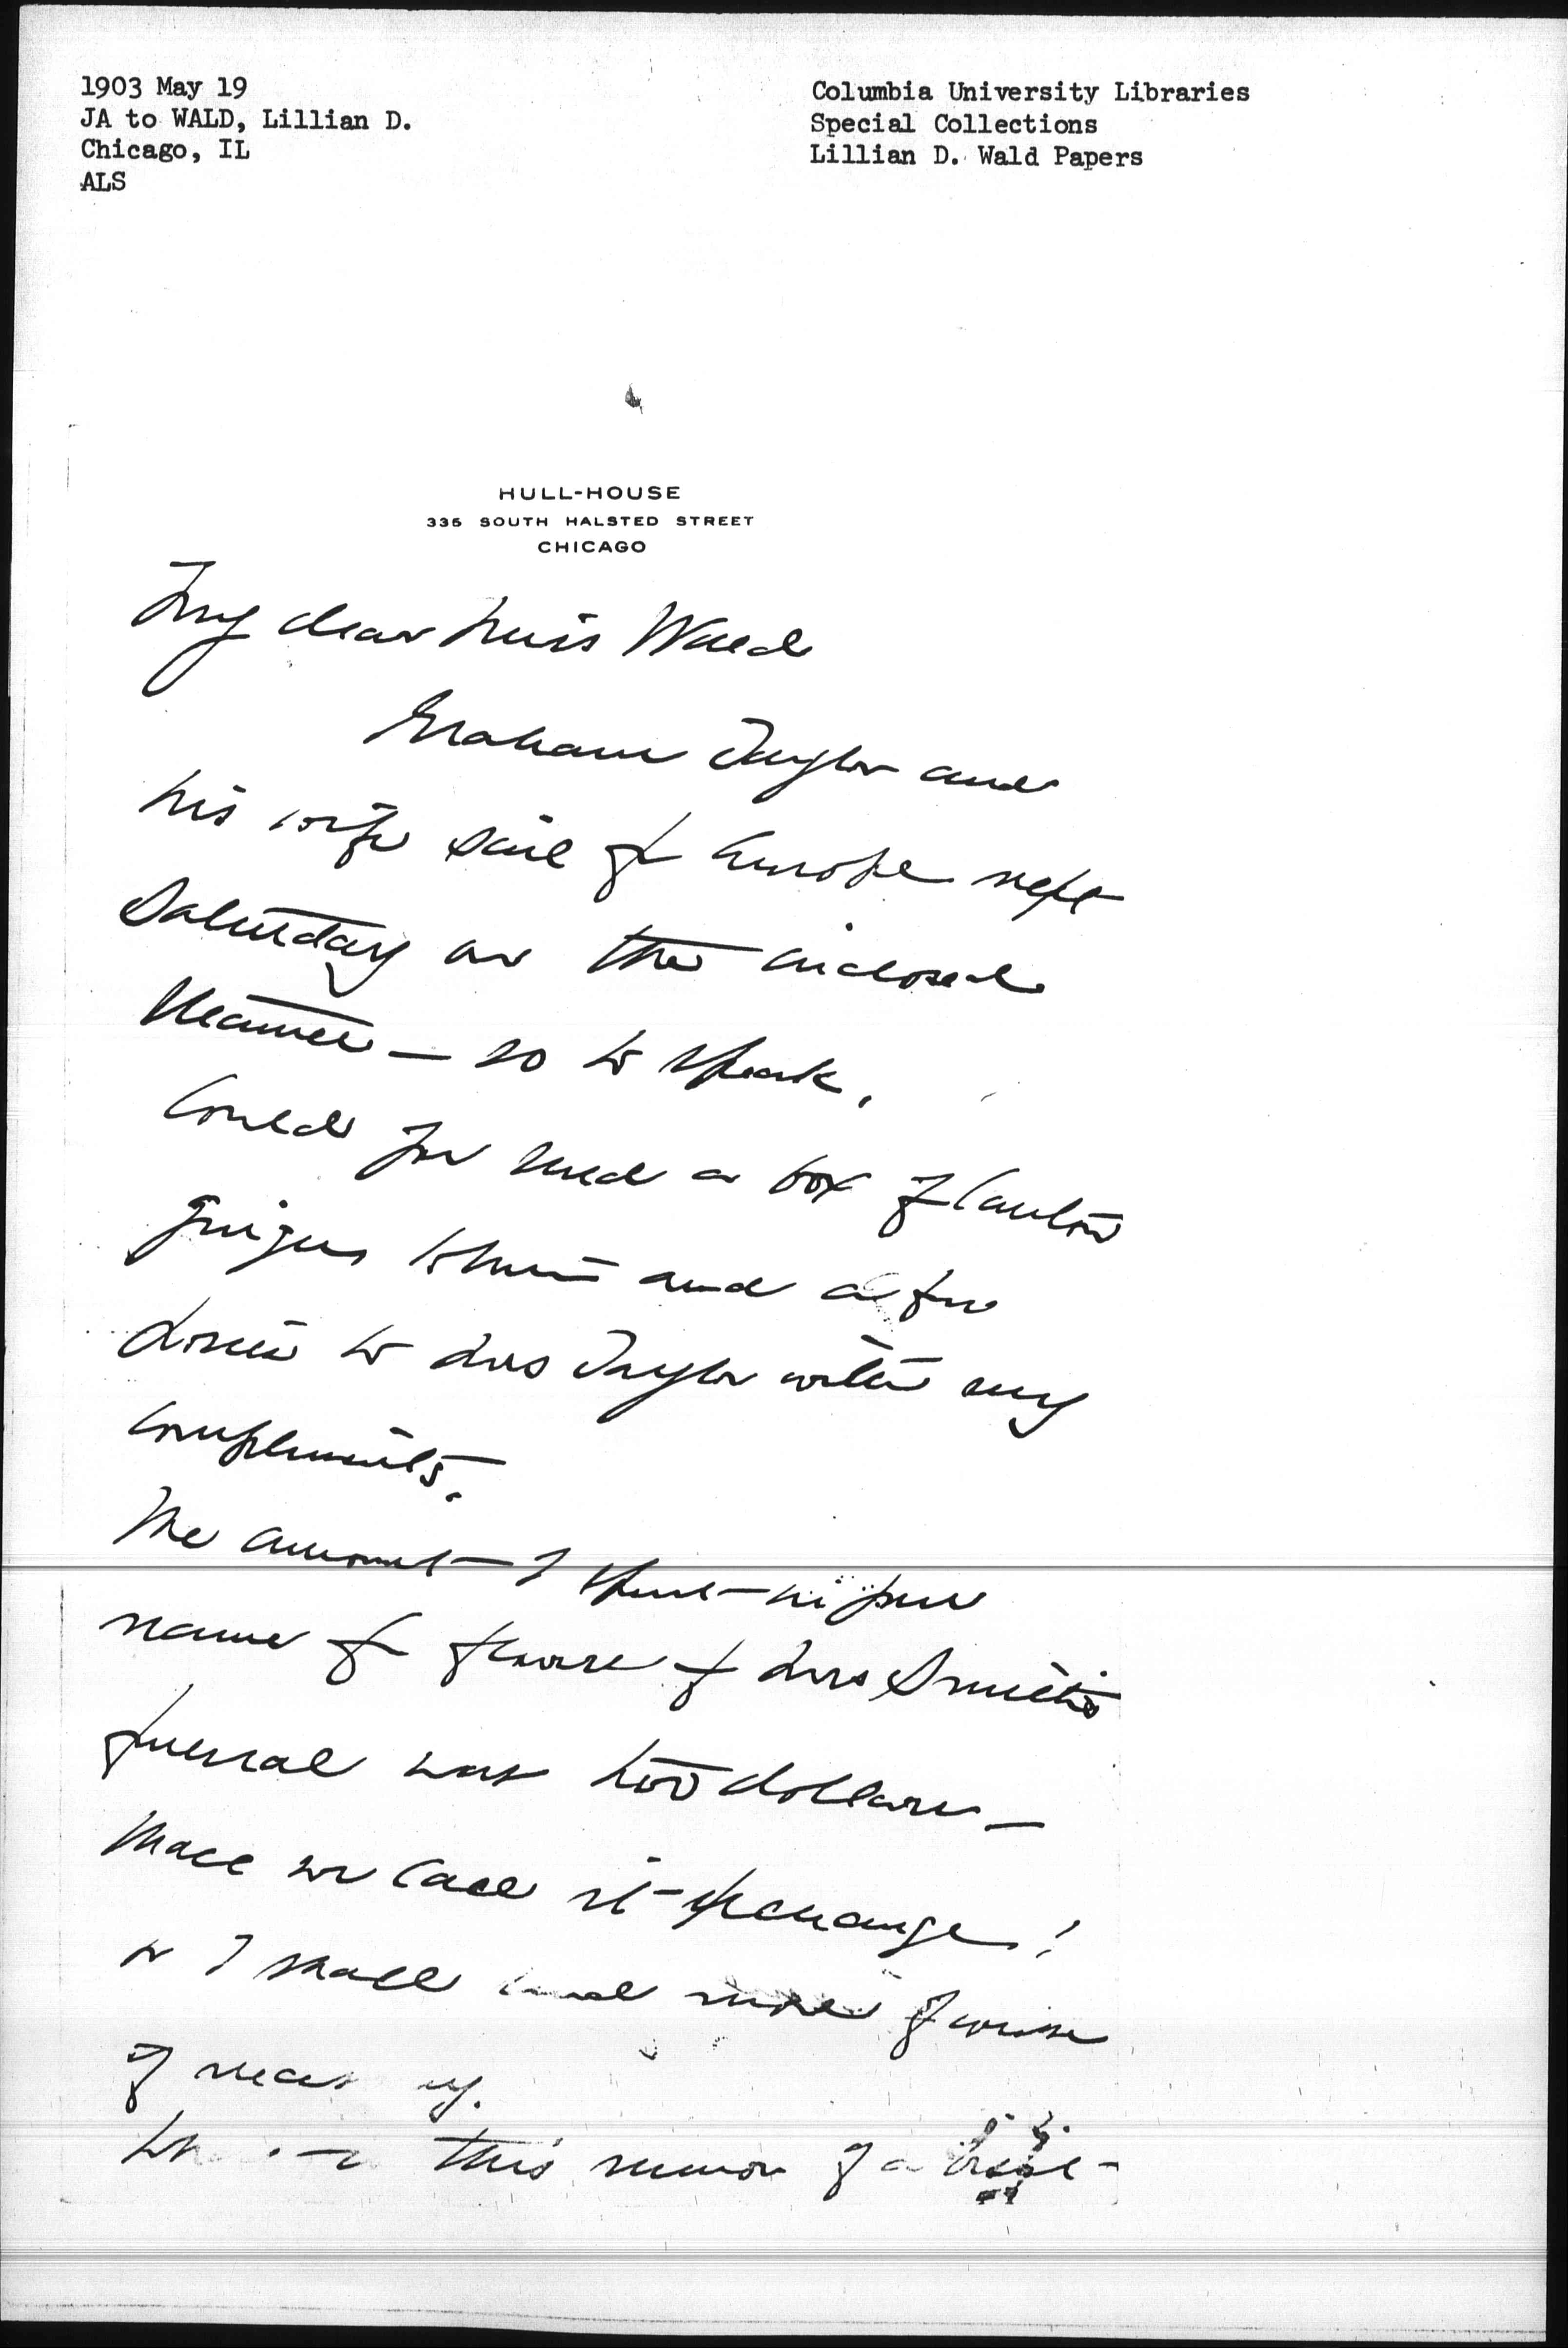 1903 May 19
JA to WALD, Lillian D.
Chicago, IL
ALS
Columbia University Libraries
Special Collections
Lillian D. Wald Papers
HULL-HOUSE
335 SOUTH HALSTED STREET
CHICAGO
My dear Miss Wald
Graham Taylor and
his wife sail for Europe next
Saturday on the inclosed
steamer — so to speak.
Could you send a box of Canton
ginger to him and a few
to Mrs Taylor with my
compliments.
The amount I spent in your
name for flowers for Mrs Smith's
funeral was two dollars —
Shall we call it exchange!
or I shall send more of course
if necessary.
this rumor of a